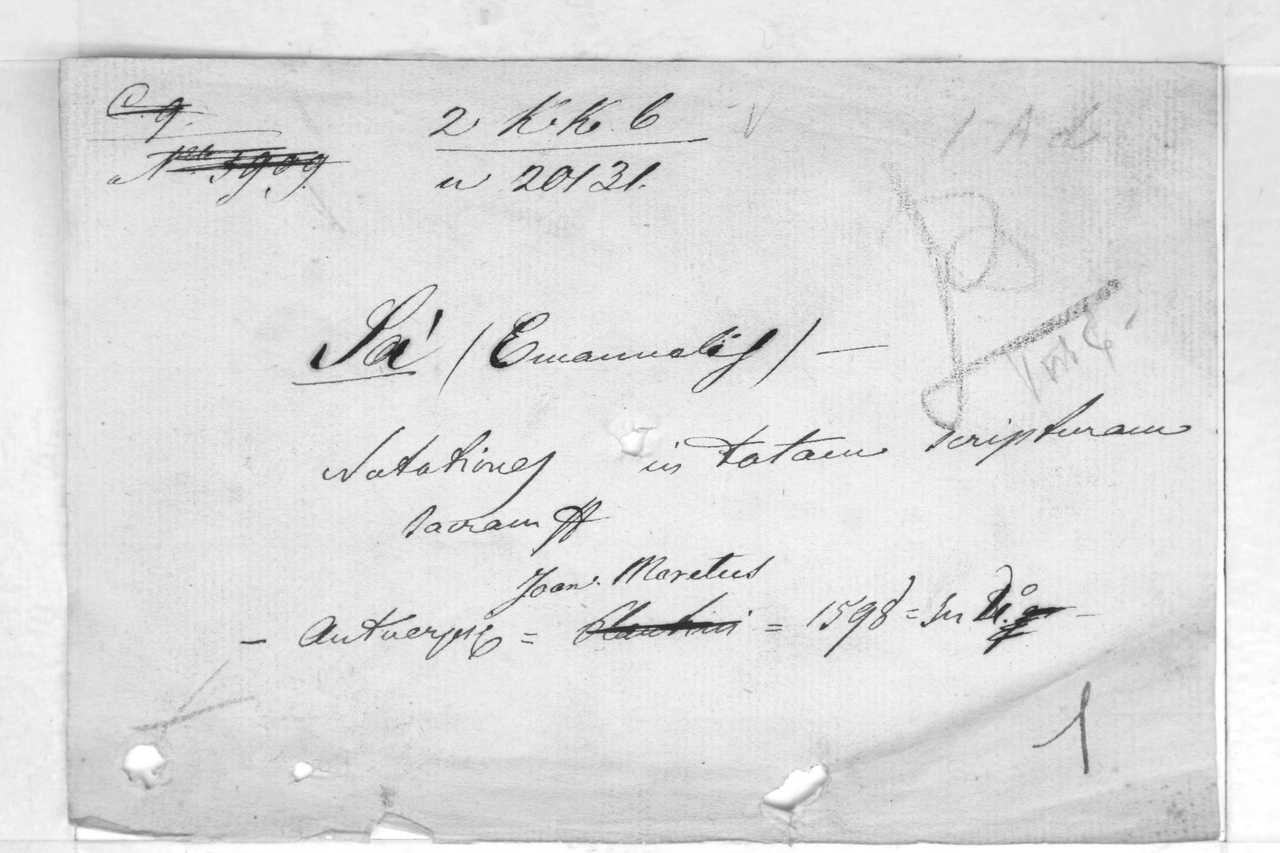 C. 9.
2 K.K. 6
N.ro 5909.
n 20131.
1 A d
Sà (Emanuelis) —
Notationes in totam scripturam
sacram
Joan. Moretus
— Antverpiæ = Plantini = 1598 = In 4.o —
1